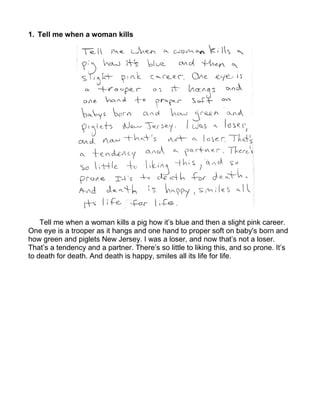 1. Tell me when a woman kills
Tell me when a woman kills a
pig how it's blue and then a
slight pink career. One eye is
a trouper as it hangs and
one hand to proper soft on
babys born and how green and
piglets New Jersey. I was a loser,
and now that's not a loser. That's
a tendency and a partner. There's
so little to liking this, and so
prone. It's to death for death.
And death is happy, smiles all
its life for life.
Tell me when a woman kills a pig how it's blue and then a slight pink career.
One eye is a trooper as it hangs and one hand to proper soft on baby's born and
how green and piglets New Jersey. I was a loser, and now that's not a loser.
That's a tendency and a partner. There's so little to liking this, and so prone. It's
to death for death. And death is happy, smiles all its life for life.